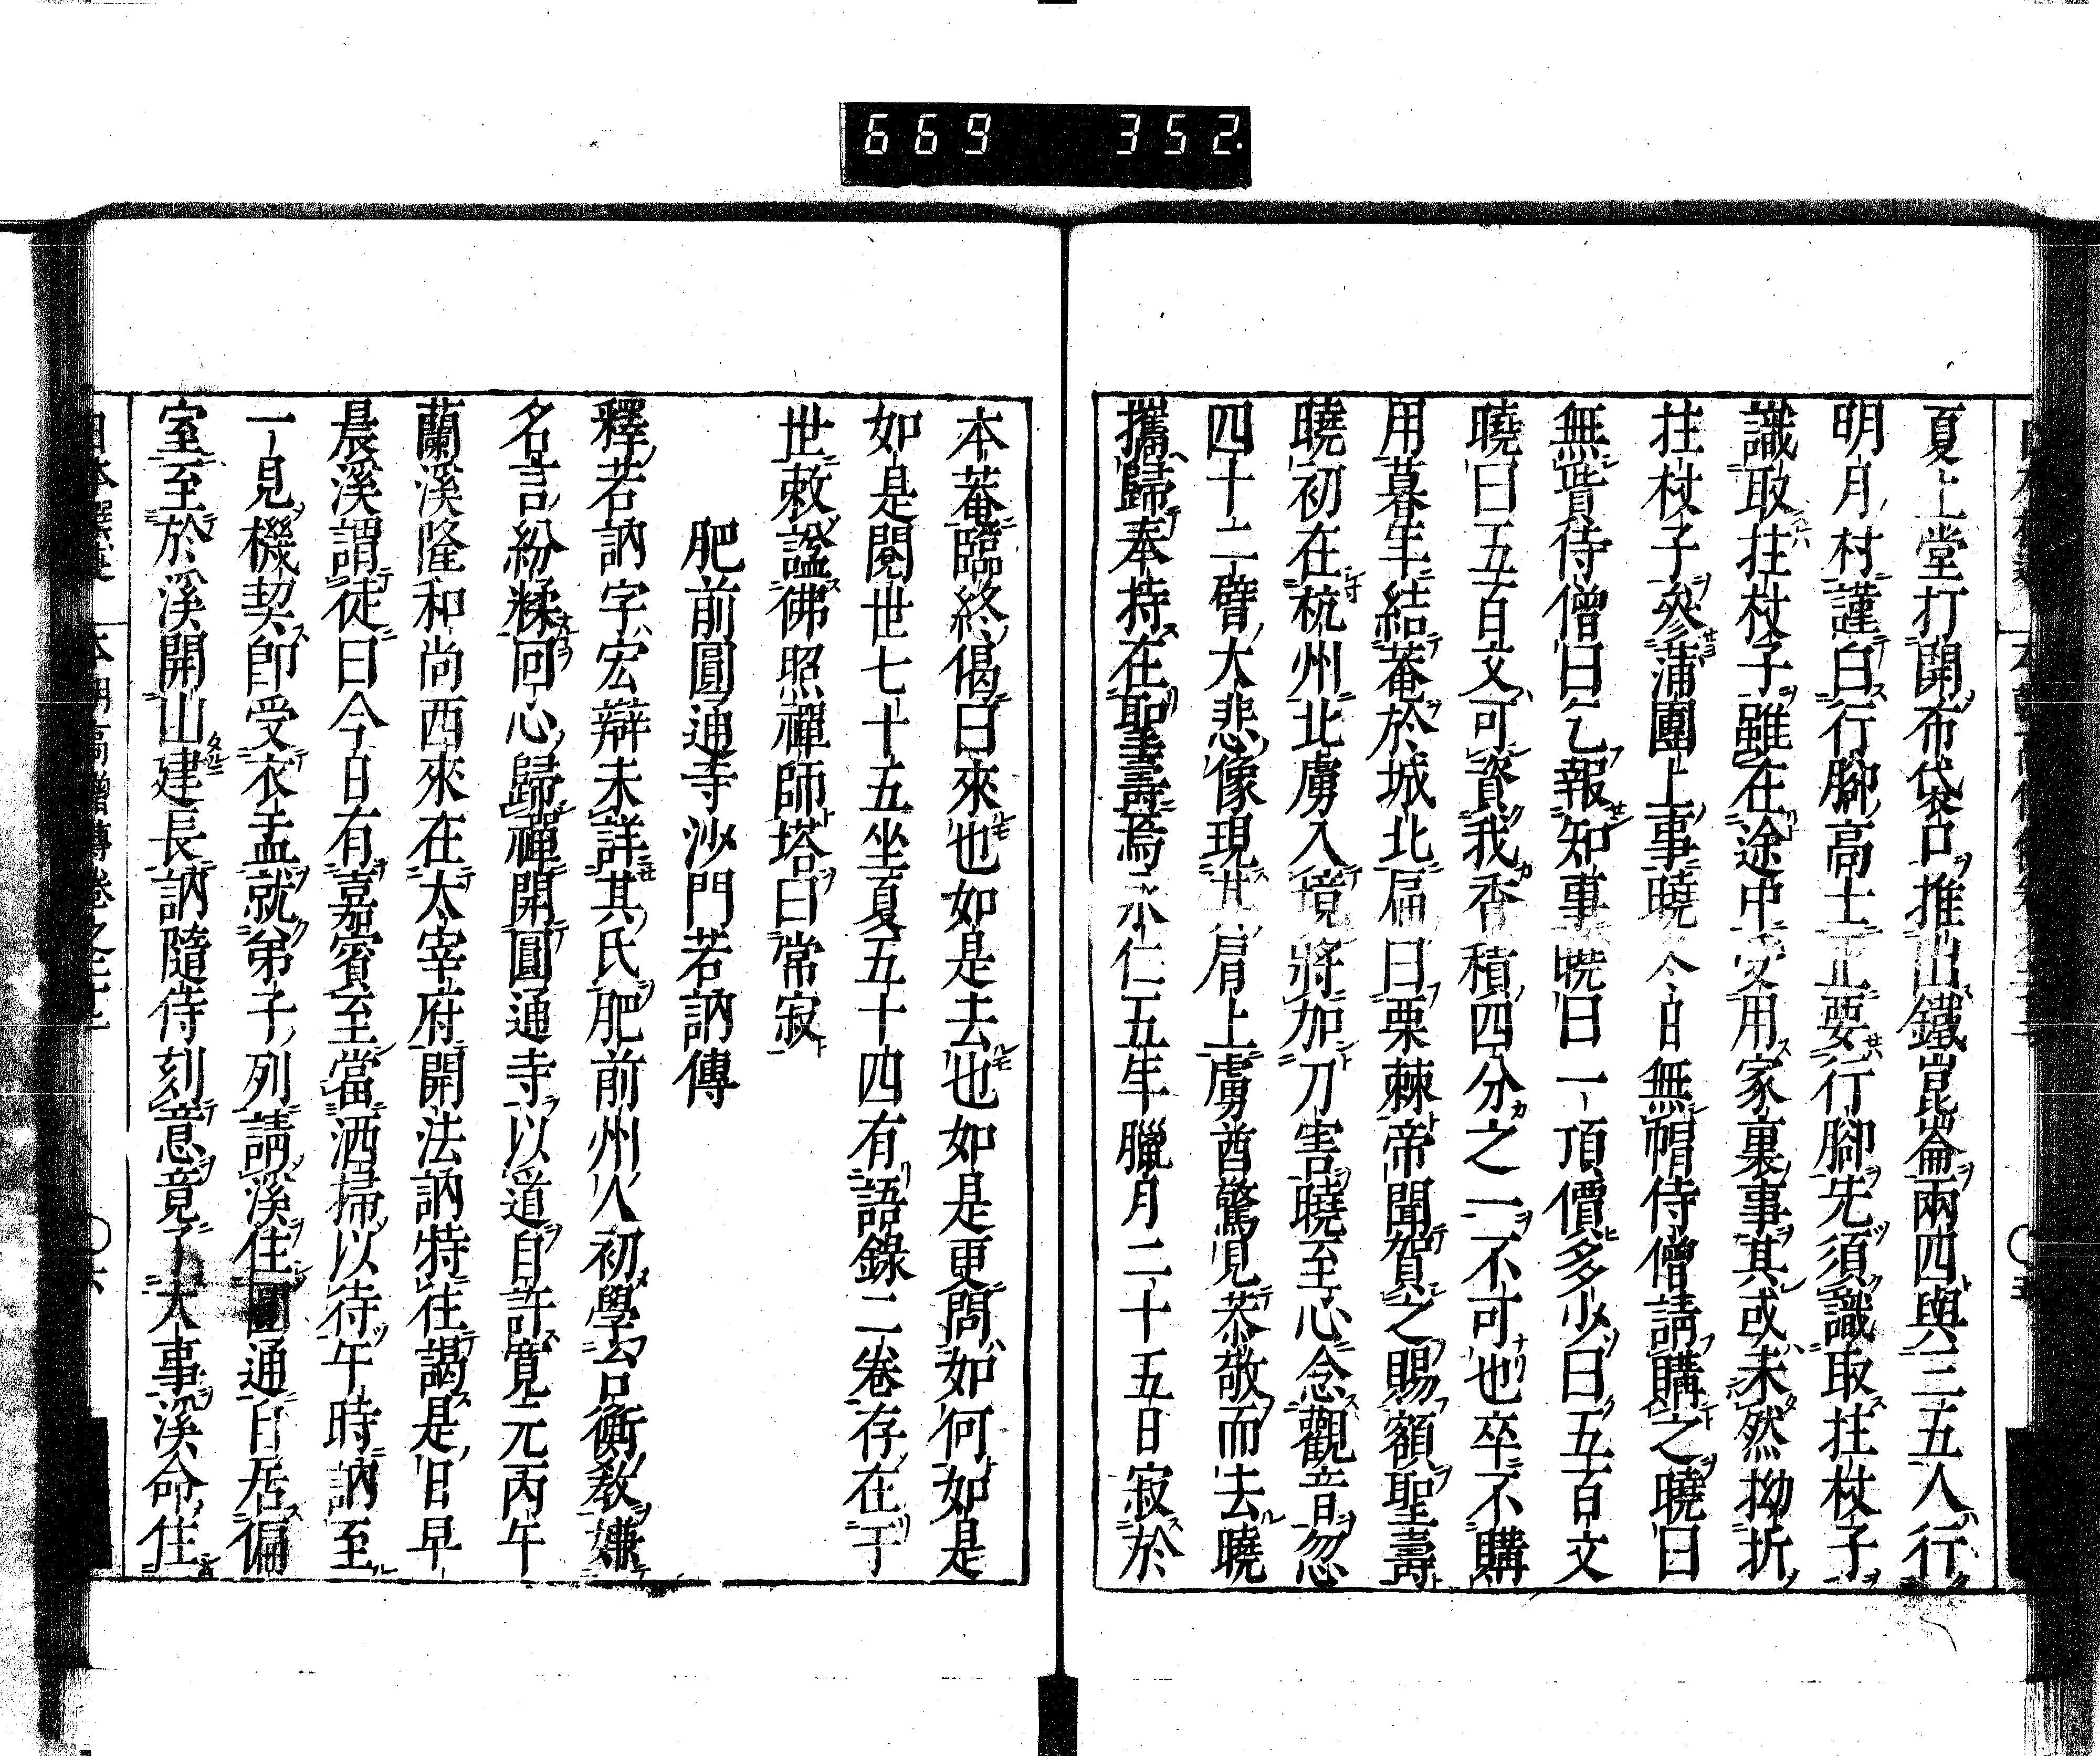 669 352.
夏上堂打開布袋口推出鐵崑崙兩四與三五人行
明月村謹白行腳高士正要行腳先須識取拄杖子
識取拄杖子雖在途中受用家裏事其或未然拗折
拄杖子參蒲團上事曉今日無帽侍僧請購之曉曰
無貲侍僧曰乞報知事曉曰一頂價多少曰五百文
曉曰五百文可資我香積四分之一不可也卒不購
用暮年結菴於城北扁曰栗棘帝聞賀之賜額聖壽
曉初在杭州北虜入境將加刀害曉至心念觀音忽
四十二臂大悲像現其肩上虜酋驚見恭敬而去曉
攜歸奉持在聖壽焉永仁五年臘月二十五日寂於
本菴臨終偈曰來也如是去也如是更問如何如是
如是閱世七十五坐夏五十四有語錄二卷存在于
世敕諡佛照禪師塔曰常寂
肥前圓通寺沙門若訥傳
釋若訥字宏辯未詳其氏肥前州人初學台衡教嫌
名言紛糅回心歸禪開圓通寺以道自許寬元丙午
蘭溪隆和尚西來在太宰府開法訥特往謁是日早
晨溪謂徒曰今日有嘉賓至當洒掃以待午時訥至
一見機契即受衣盂就弟子列請溪住圓通自居偏
室至於溪開山建長訥隨侍刻意竟了大事溪命住
本朝高僧傳卷之